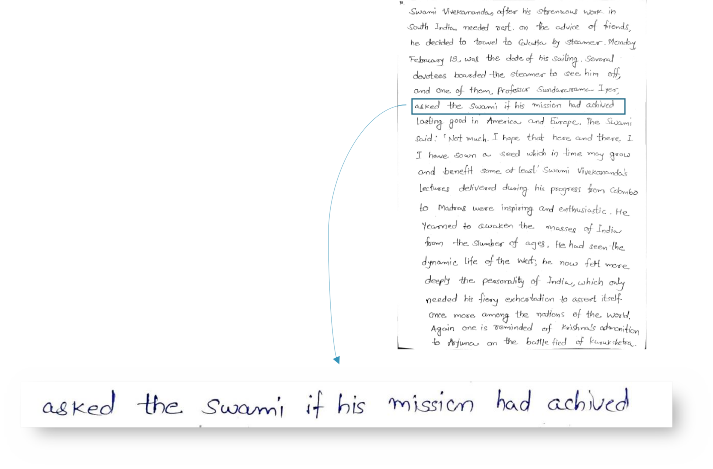 Swami Vivekananda, after his strenuous work in
South India needed rest. on the advice of friends,
he decided to travel to Calcutta by steamer. Monday
February 15, was the date of his sailing. Several
devotees boarded the steamer to see him off,
and one of them, Professor Sundararama Iyer,
asked the Swami if his mission had achived
lasting good in America and Europe. The Swami
said: 'Not much. I hope that here and there I
I have sown a seed which in time may grow
and benefit some at least' Swami Vivekananda's
lectures delivered during his progress from Colombo
to Madras were inspiring and enthusiastic. He
yearned to awaken the masses of India
from the slumber of ages. He had seen the
dynamic life of the West; he now felt more
deeply the personality of India, which only
needed his fiery exhortation to assert itself
once more among the nations of the world.
Again one is reminded of Krishna's admonition
to Arjuna on the battle field of Kurukshetra.
asked the Swami if his mission had achived